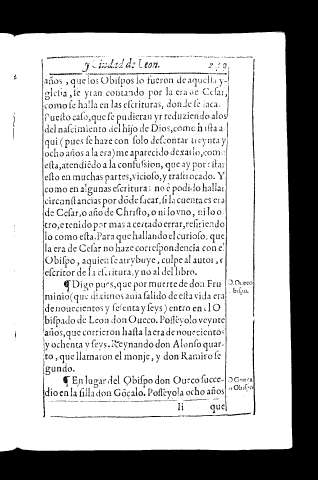 y Ciudad de Leon.
años, que los Obispos lo fueron de aquella y-
glesia, se yran contando por la era de Cesar,
como se halla en las escrituras, donde se saca.
Puesto caso, que se pudieran yr reduziendo a los
del nascimiento del hijo de Dios, como hasta a
qui (pues se haze con solo descontar treynta y
ocho años a la era) me a parecido dexarlo, como
esta, atendiẽdo a la confussion, que ay por estar
esto en muchas partes, vicioso, y trastrocado. Y
como en algunas escrituras no è podido hallar
circunstancias por dõde sacar, si la cuenta es era
de Cesar, o año de Christo, o ni lo vno, ni lo o-
tro, e tenido por mas acertado errar, refiriendo
lo como esta. Para que hallando el curioso, que
la era de Cesar no haze correspondencia con el
Obispo, a quien se atrybuye, culpe al autor, e
escritor de la escritura, y no al del libro.
¶ Digo pues, que por muerte de don Fru
minio (que diximos auia salido de esta vida era
de nouecientos y sesenta y seys) entro en el O
bispado de Leon don Oueco. Posseyolo veynte
años, que corrieron hasta la era de nouecientos
y ochenta y seys. Reynando don Alonso quar-
to, que llamaron el monje, y don Ramiro se
gundo.
D. Oueco
bispo.
¶ En lugar del Obispo don Oueco succe-
dio en la silla don Gõçalo. Posseyola ocho años
D. Gonça
o Obispo
Ii que